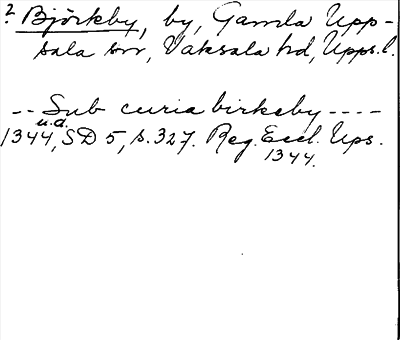 ? Björkby, by, Gamla Upp-
sala sn, Vaksala hd, Upps.l.
-- Sub curia birkeby ----
u.d.
1344, SD 5, s.327. Reg. Eccl. Ups.
1344.